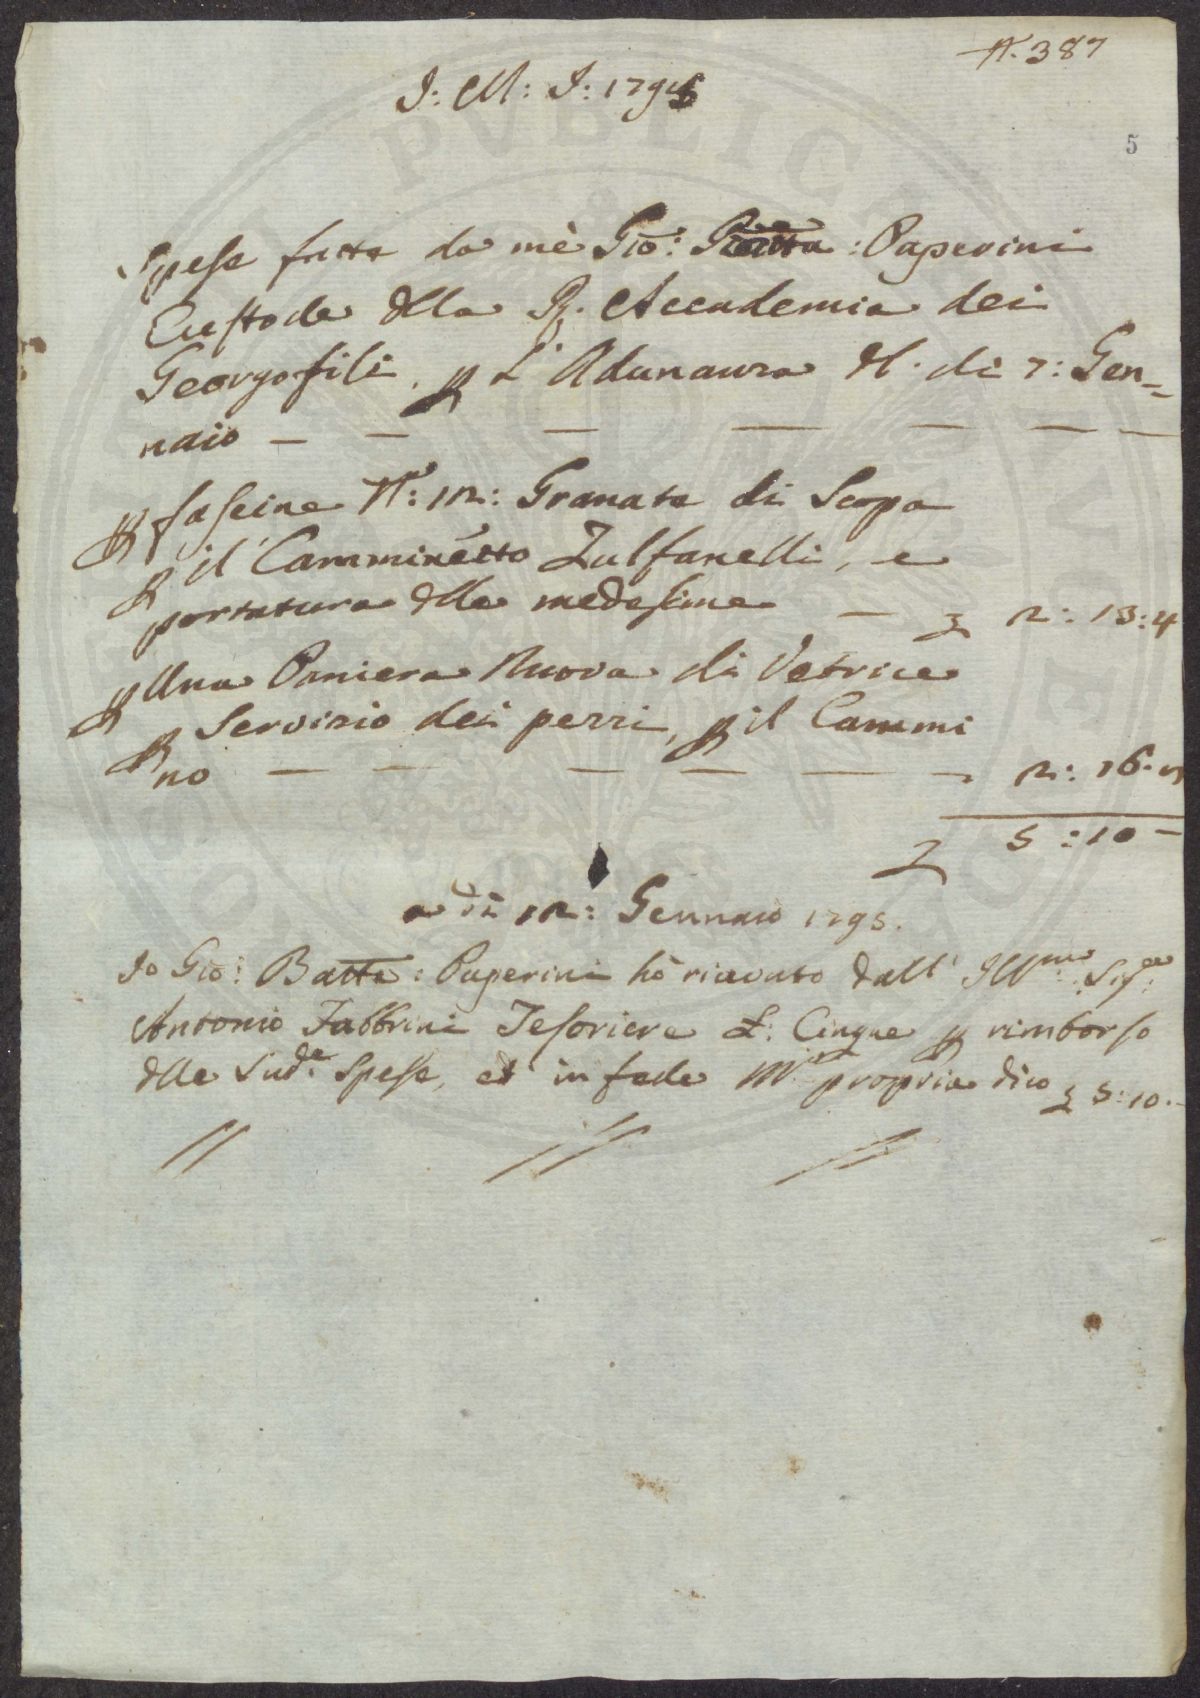 N. 387
J: M: J: 1795
5
Spese fatte da mè Gio: Batta: Paperini
Custode della R. Accademia dei
Georgofili. p L'Adunanza del. di 7: Gen=
naio — — — — — — —
p fascine N.o: 12: Granata di Scopa
p il Camminetto Zulfanelli, e
portatura delle medesime — £ 2: 13:4
p Una Paniera Nuova di Vetrice
p Servizio dei pezzi, p il Cammi
no — — — — — — 2: 16.
£ 5:10 —
a dì 12: Gennaio 1795.
Io Gio: Batta: Paperini hò ricevuto dall' Illmo: Sigre:
Antonio Fabbrini Tesoriere £: Cinque p rimborso
delle Sudde. Spese, ed in fede Mno propria dico £ 5:10.—
// // //